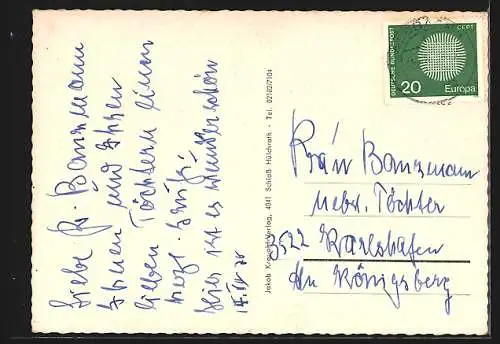 Liebe Fr. Banzmann
Ihnen und Ihren
lieben Töchtern einen
herzl. Gruß.
Hier ist es wunderschön
Jakob Krapohl-Verlag, 4041 Schloß Hülchrath - Tel. 02182/7104
DEUTSCHE BUNDESPOST
CEPT
20 Europa
Frau Banzmann
nebst Töchter
3522 Karlshafen
Am Königsberg